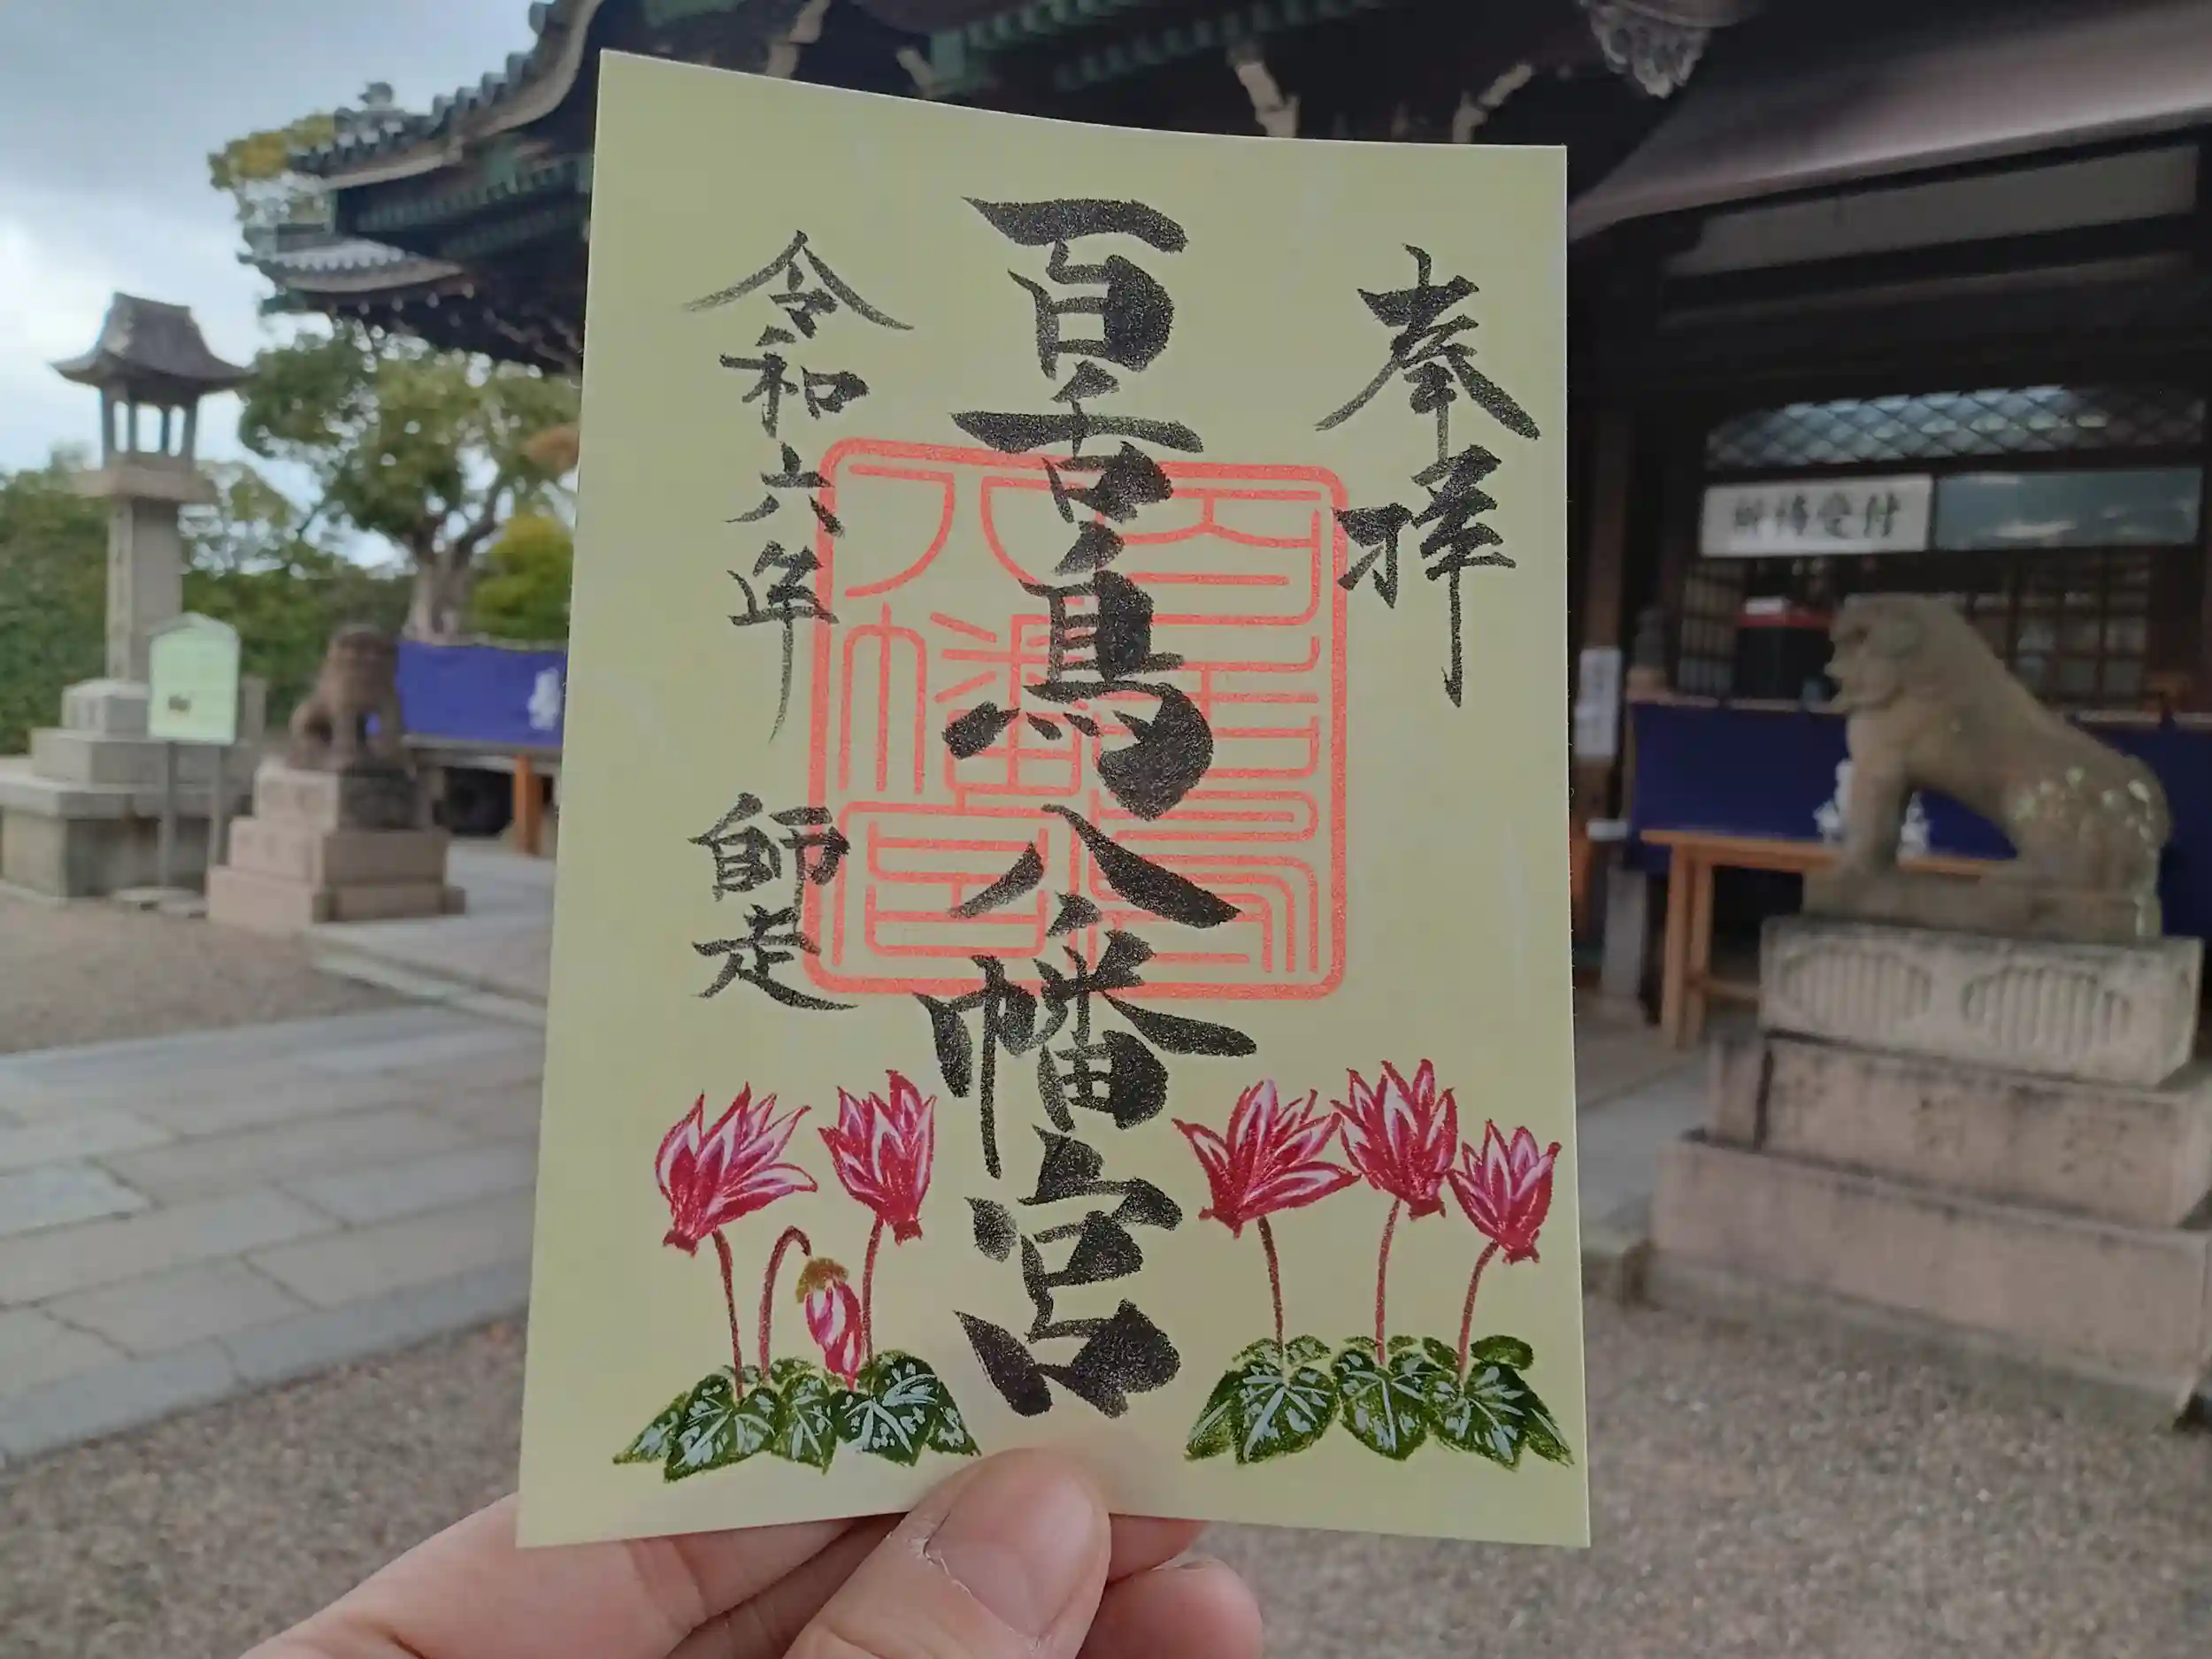 奉拝
百舌鳥八幡宮
令和六年 師走
百舌鳥
八幡宮
祈祷受付